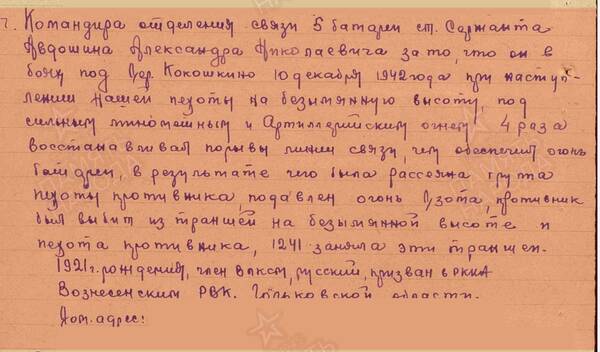 7. Командира отделения связи 5 батареи ст. Сержанта
Авдошина Александра Николаевича за то, что он в
бою под дер. Кокошкино 10 декабря 1942 года при наступ-
лении нашей пехоты на безымянную высоту, под
сильным минометным и Артиллерийским огнем 4 раза
восстанавливал порывы линии связи, чем обеспечил огонь
батареи, в результате чего была рассеяна группа
пехоты противника, подавлен огонь дзота, противник
был выбит из траншей на безымянной высоте и
пехота противника, 1241 заняла эти траншеи.
1921 г. рождения, член ВЛКСМ, русский, призван в РККА
Вознесенским РВК. Горьковской области.
Дом. адрес: